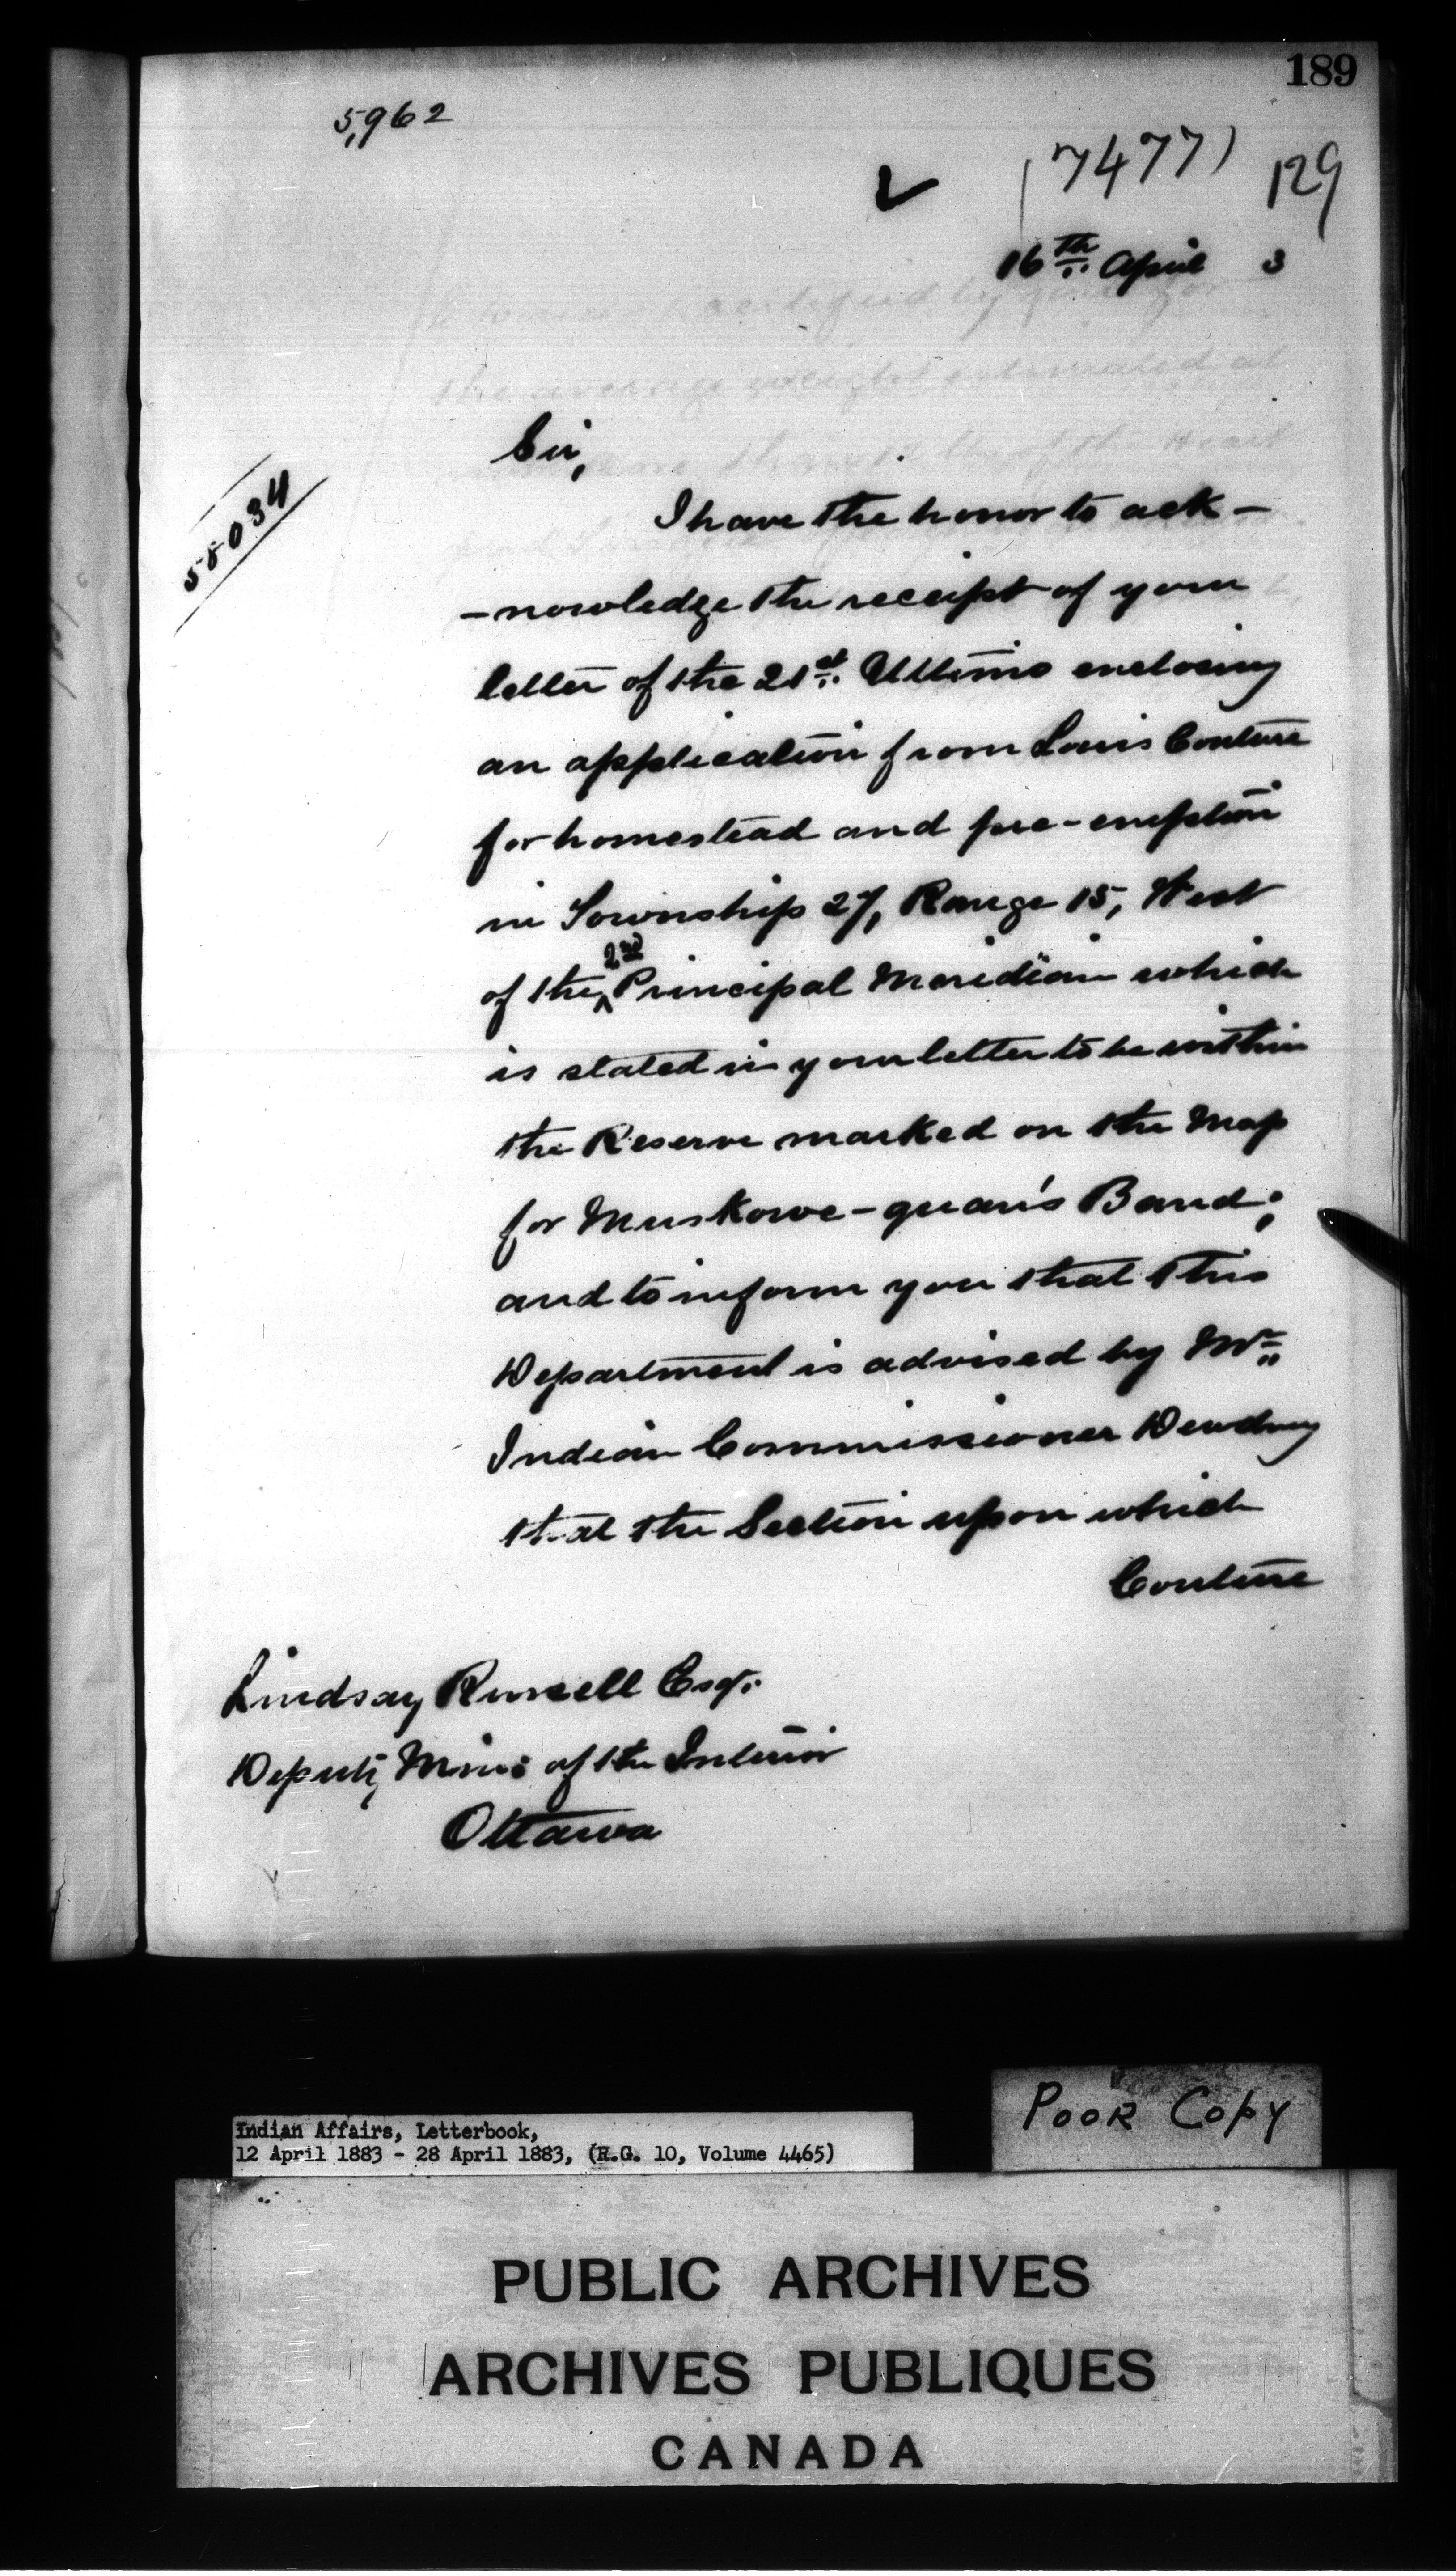 189
5,962
7477)
129
16th April 3
58034
Sir,
I have the honor to ack-
-nowledge the receipt of your
letter of the 21st Ultimo enclosing
an application from Louis Couture
for homestead and pre-emption
in Township 27, Range 15, West
of the 2nd Principal Meridian which
is stated in your letter to be within
the Reserve marked on the Map
for Muskowe-quan's Band;
and to inform you that this
Department is advised by Mr.
Indian Commissioner Dewdney
that the Section upon which
Couture
Lindsay Russell Esqr.
Deputy Minr. of the Interior
Ottawa
Poor Copy
Indian Affairs, Letterbook,
12 April 1883 - 28 April 1883, (R.G. 10, Volume 4465)
PUBLIC ARCHIVES
ARCHIVES PUBLIQUES
CANADA